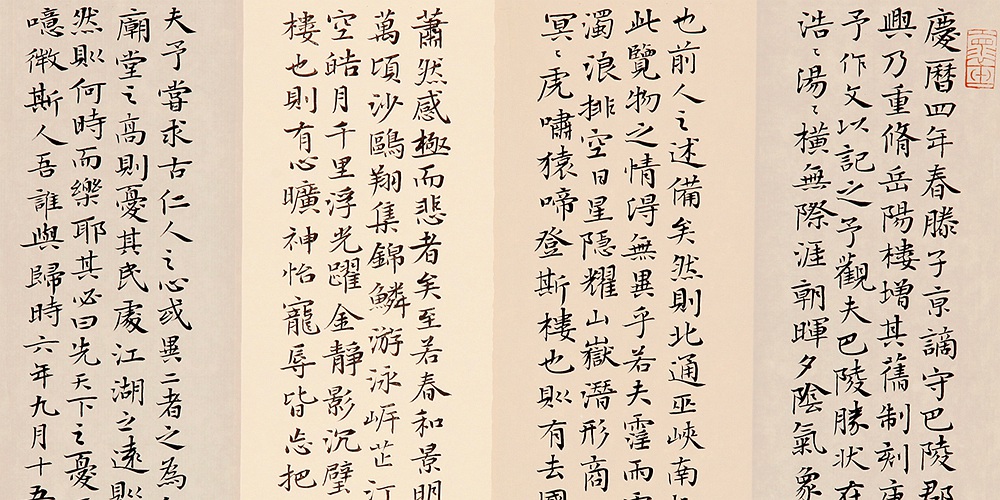 慶曆四年春滕子京謫守巴陵郡
興乃重脩岳陽樓增其舊制刻唐
予作文以記之予觀夫巴陵勝狀在
浩〻湯〻橫無際涯朝暉夕陰氣象
也前人之述備矣然則北通巫峽南
此覽物之情得無異乎若夫霪雨
濁浪排空日星隱耀山嶽潛形商
冥〻虎嘯猿啼登斯樓也則有去國
蕭然感極而悲者矣至若春和景明
萬頃沙鷗翔集錦鱗游泳岸芷汀
空皓月千里浮光躍金靜影沉璧
樓也則有心曠神怡寵辱皆忘把
夫予嘗求古仁人之心或異二者之為
廟堂之高則憂其民處江湖之遠則
然則何時而樂耶其必曰先天下之憂
噫微斯人吾誰與歸時六年九月十五